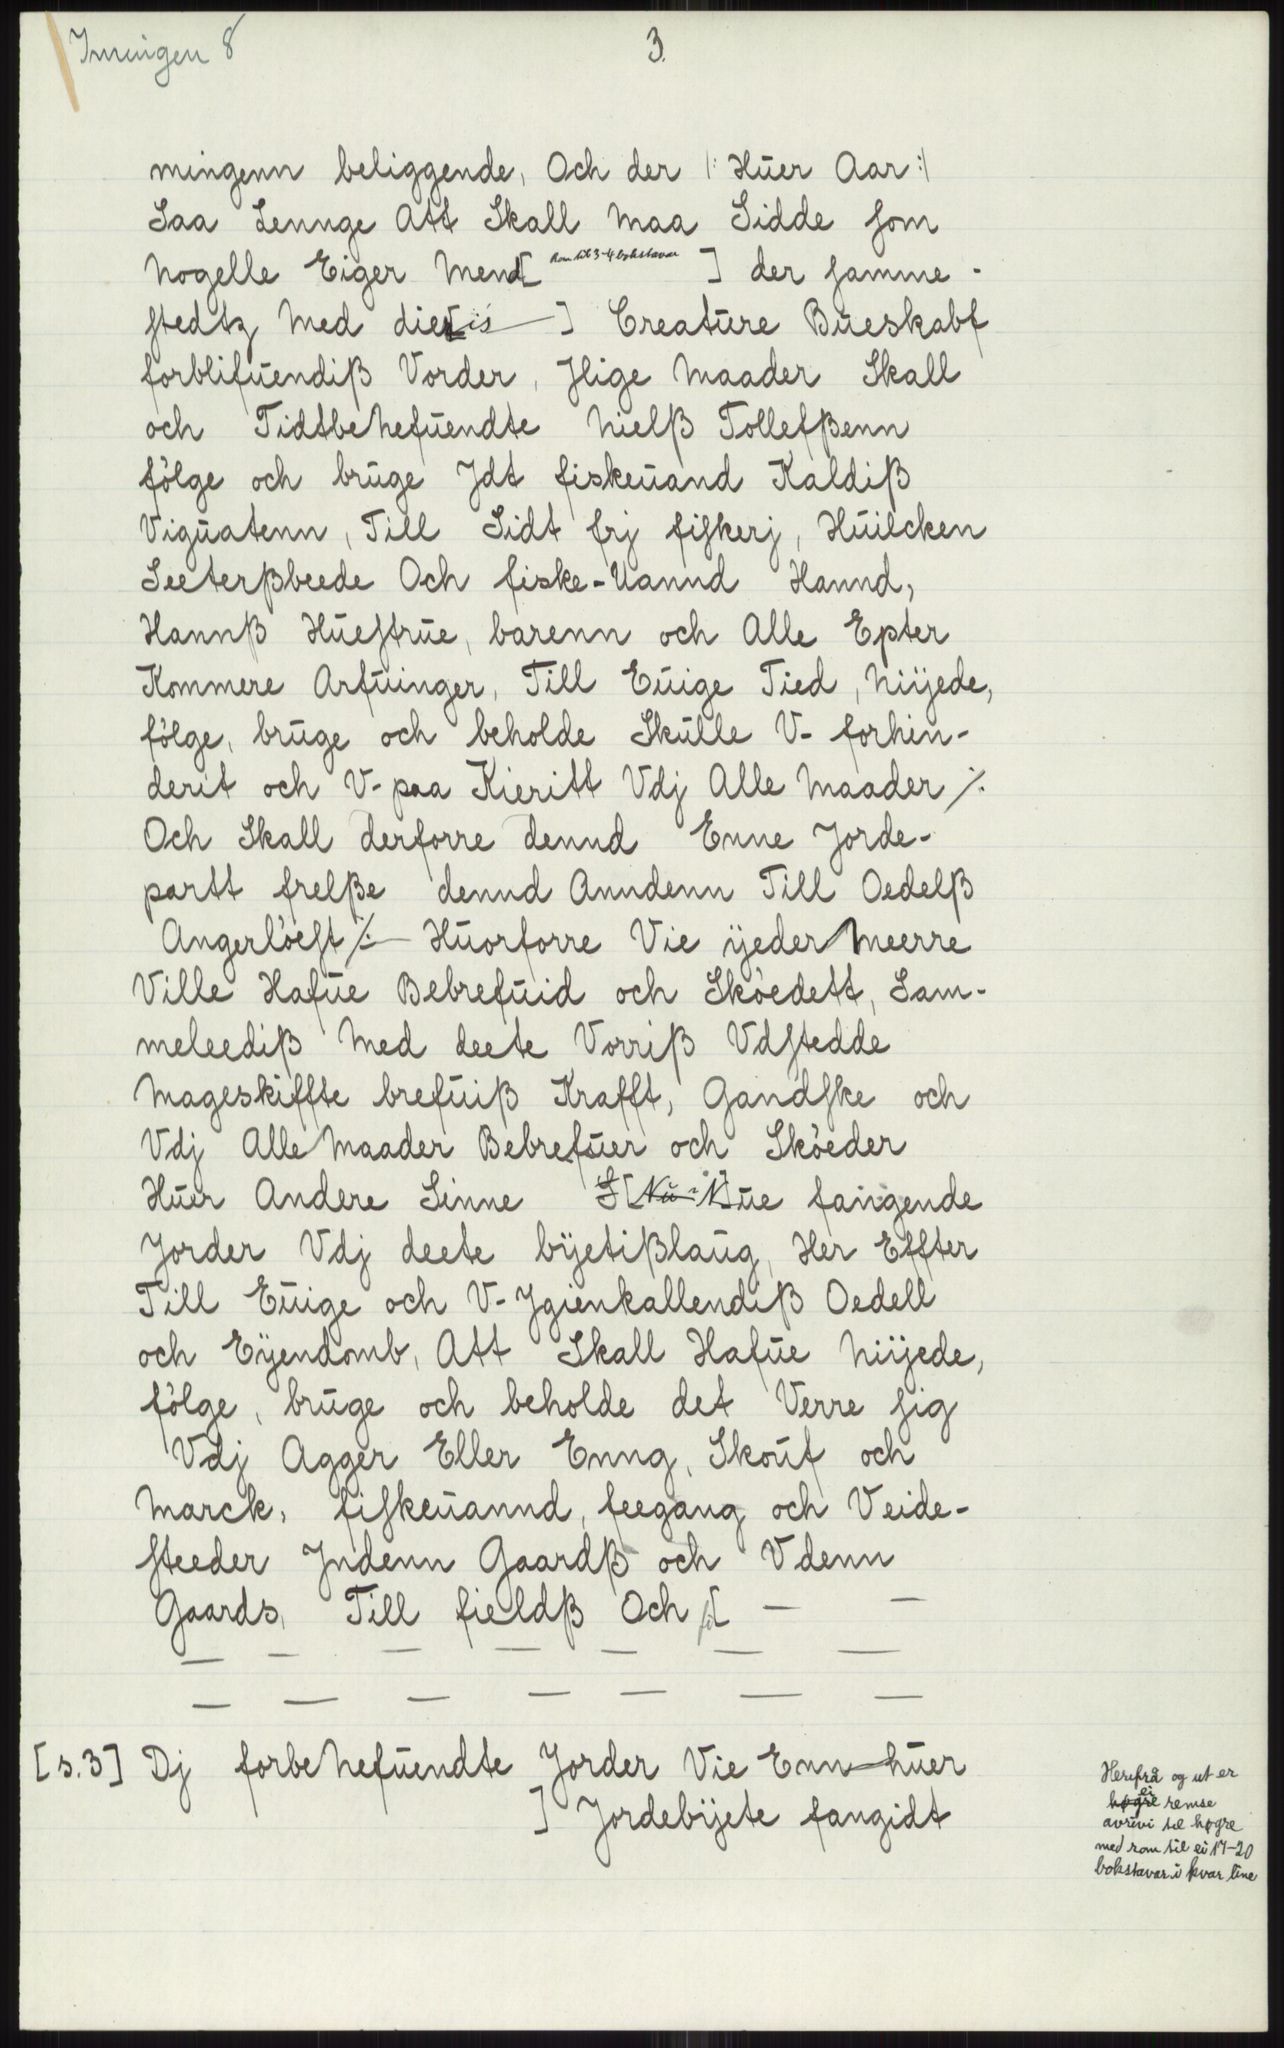 Imingen 8
3.
mingenn beliggende, Och der |: Hüer Aar :|
Saa Lennge Att Skall Maa Sidde som
Nogelle Eiger Mend [rom til 3-4 bokstavar] der samme-
stedtz Med dier[is] Creatüre Büeskabf
forblifüendiß Vorder, Jlige Maader Skall
och Tidtbeneﬀüendte Nielß Tollefßenn
följge och brüge Jdt fiskeüand Kaldiß
Vigüatenn, Till Sidt frj fiskerj, Hüilcken
Seeterßbeede Och fiske-Uannd Hannd,
Hannß Hüestrüe, barenn och Alle Epter
Kommere Arfüinger, Till Eüige Tied, Nüjede,
fölge, brüge och beholde Skülle V-forhin-
derit och V-paa Kieritt Vdj Alle Maader ⁒
Och Skall derforre dennd Enne Jorde-
partt frelße dennd Anndenn Till Oedelß
Angerlöest ⁒ Hüorforre Vie ÿeder Meerre
Ville Hafüe Bebrefüid och Sköedett, Sam-
meleediß Med deete Vorriß Vdstedde
Mageskiffte brefüiß Krafft, Gandske och
Vdj Alle Maader Bebrefüer och Sköeder
Hüer Andere Sinne üe fangende
Jorder Vdj deete bÿetißlaüg, Her Effter
Till Eüige och V-Jgienkallendiß Oedell
och Eÿendomb, Att Skall Hafüe Nüjede,
fölge, brüge och beholde det Verre sig
Vdj Agger Eller Enng, Skoüf och
Marck, fiskeüannd, feegang och Veide-
steeder Jndenn Gaardß och Vdenn
Gaards, Till fieldß Och [ — —
— — — — — — —
— — — — — — —
[s.3] Dj forbenefüendte Jorder Vie Enn hüer
] Jordebÿete fangidt
Herifrå og ut er
ei remse
avrivi til høgre
med rom til ei 17-20
bokstavar i kvar line